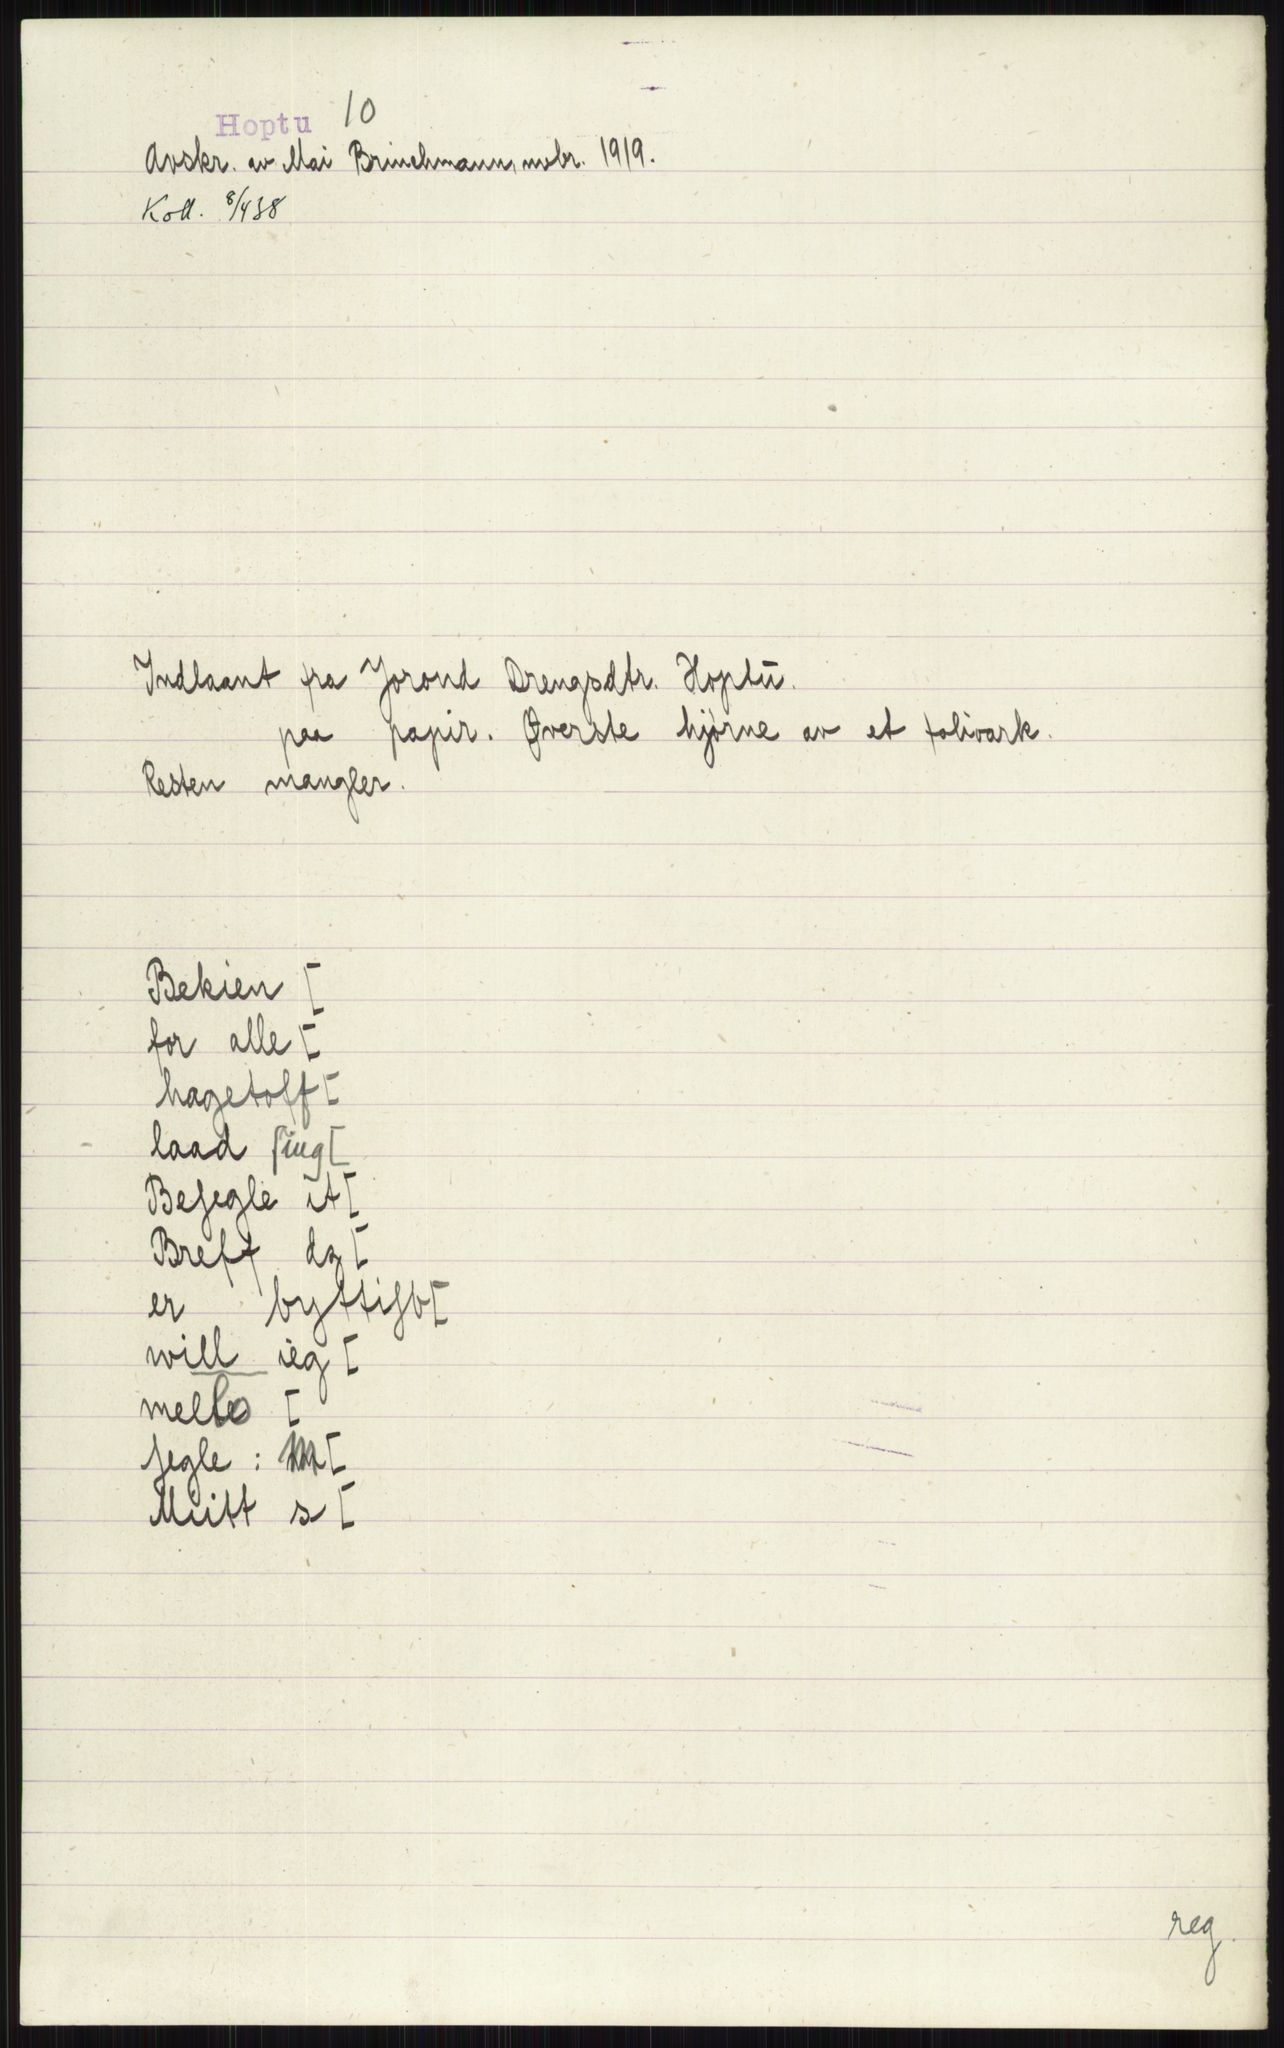 Hoptu 10
Avskr. av Mai Brinchmann, novbr. 1919.
Koll. 8/4 38
Indlaant fra Jorond Drengsdtr. Hoptu.
paa papir. Øverste hjørne av et folioark.
Resten mangler.
Bekien [
for alle [
hagetoff [
laad sing [
Besegle it [
Breff da [
er byttist [
will ieg [
mello [
segle : [
Miitt s [
reg.